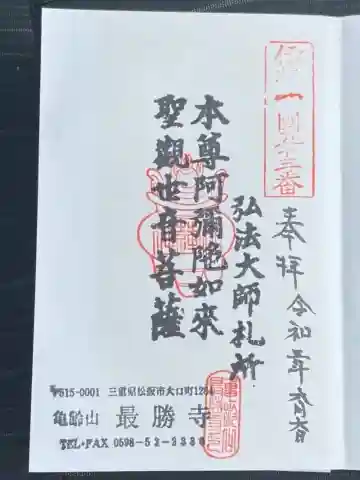 奉拝 令和 年 月 日
弘法大師札所
本尊阿彌陀如來
聖觀世音菩薩
〒515-0001 三重県松阪市大口町1264
亀齢山 最勝寺
TEL・FAX 0598-52-2230